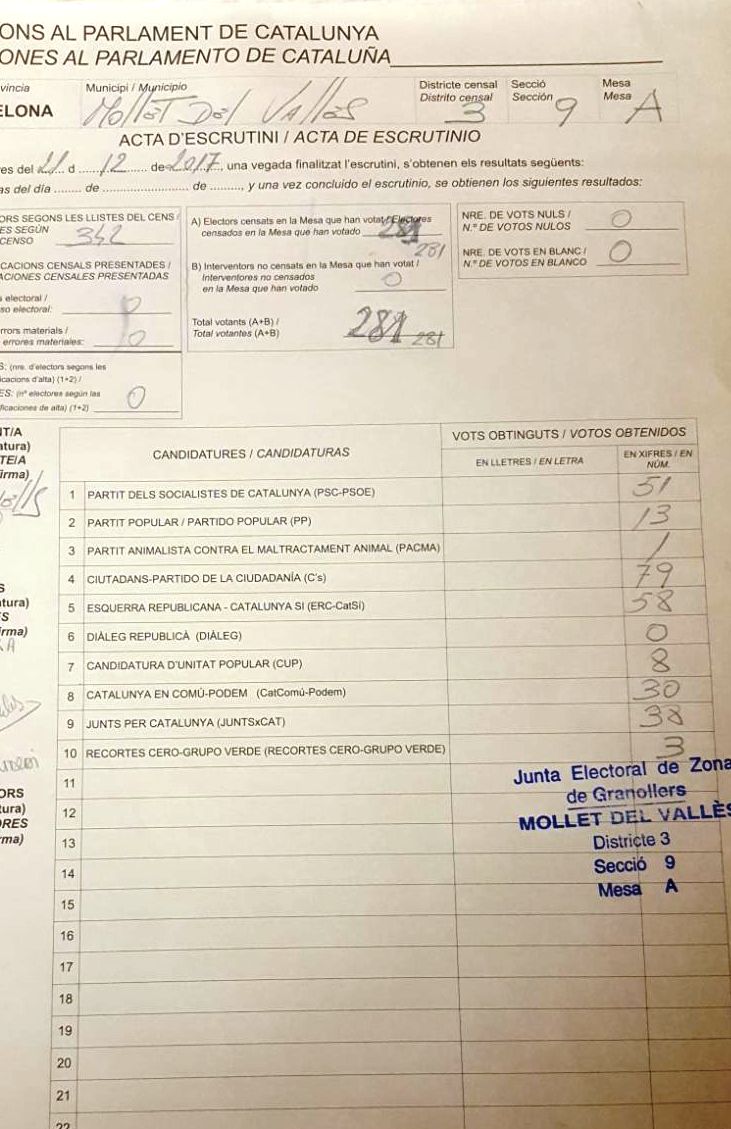 ONS AL PARLAMENT DE CATALUNYA
ONES AL PARLAMENTO DE CATALUÑA
víncia
ELONA
Municipi / Municipio
Mollet Del Vallès
Districte censal
Distrito censal
3
Secció
Sección
9
Mesa
Mesa
A
ACTA D'ESCRUTINI / ACTA DE ESCRUTINIO
res del 21 d 12 de 2017, una vegada finalitzat l'escrutini, s'obtenen els resultats següents:
as del día ........ de ...................... de ........, y una vez concluido el escrutinio, se obtienen los siguientes resultados:
ORS SEGONS LES LLISTES DEL CENS /
ES SEGÚN
CENSO 342
CACIONS CENSALS PRESENTADES /
ACIONES CENSALES PRESENTADAS
s electoral /
so electoral: 0
errors materials /
errores materiales: 0
S: (nre. d'electors segons les
icacions d'alta) (1+2) /
ES: (nº electores según las
ificaciones de alta) (1+2) 0
A) Electors censats en la Mesa que han votat / Electores
censados en la Mesa que han votado 281
281
B) Interventors no censats en la Mesa que han votat /
Interventores no censados
en la Mesa que han votado 0
Total votants (A+B) /
Total votantes (A+B) 281 281
NRE. DE VOTS NULS /
N.º DE VOTOS NULOS 0
NRE. DE VOTS EN BLANC /
N.º DE VOTOS EN BLANCO 0
NT/A
atura)
TE/A
irma)
S
atura)
ES
irma)
ORS
tura)
ORES
rma)
CANDIDATURES / CANDIDATURAS
VOTS OBTINGUTS / VOTOS OBTENIDOS
EN LLETRES / EN LETRA
EN XIFRES / EN
NÚM.
1 PARTIT DELS SOCIALISTES DE CATALUNYA (PSC-PSOE) 51
2 PARTIT POPULAR / PARTIDO POPULAR (PP) 13
3 PARTIT ANIMALISTA CONTRA EL MALTRACTAMENT ANIMAL (PACMA) 1
4 CIUTADANS-PARTIDO DE LA CIUDADANÍA (C's) 79
5 ESQUERRA REPUBLICANA - CATALUNYA SI (ERC-CatSí) 58
6 DIÀLEG REPUBLICÀ (DIÀLEG) 0
7 CANDIDATURA D'UNITAT POPULAR (CUP) 8
8 CATALUNYA EN COMÚ-PODEM (CatComú-Podem) 30
9 JUNTS PER CATALUNYA (JUNTSxCAT) 38
10 RECORTES CERO-GRUPO VERDE (RECORTES CERO-GRUPO VERDE) 3
11
12
13
14
15
16
17
18
19
20
21
22
Junta Electoral de Zona
de Granollers
MOLLET DEL VALLÈS
Districte 3
Secció 9
Mesa A